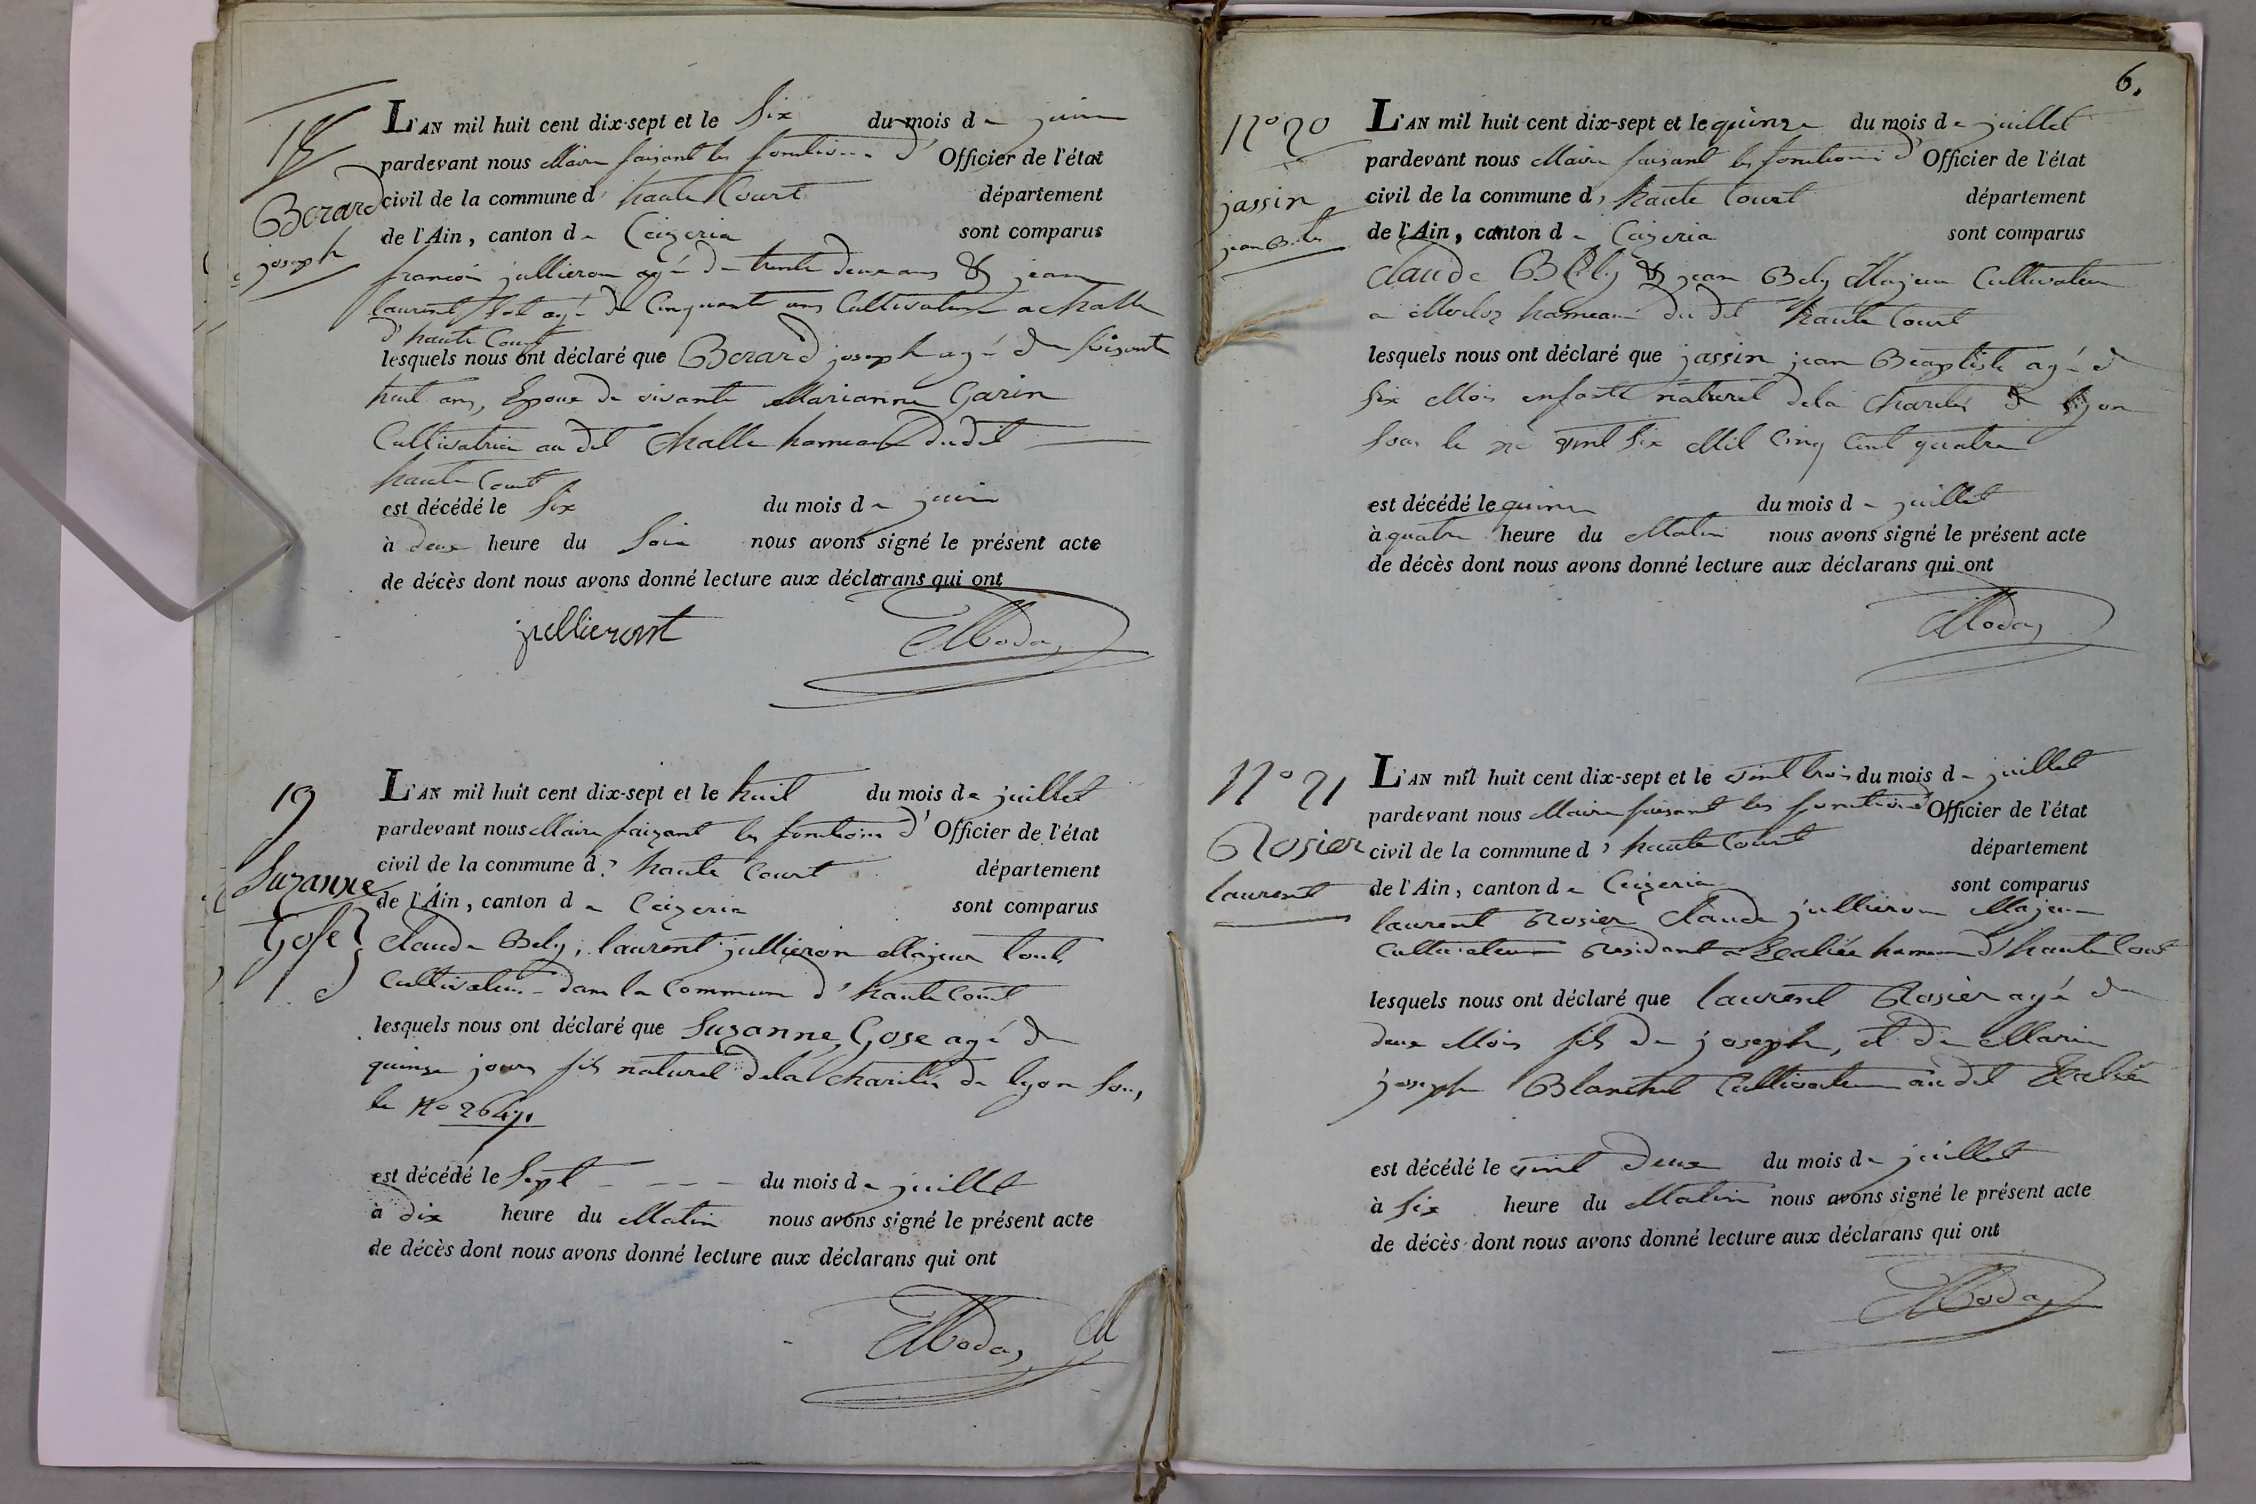 18
Berard
joseph
L'AN mil huit cent dix-sept et le Six du mois de juin
pardevant nous Maire faisant les fonctions d' Officier de l'état
civil de la commune d' haute Court département
de l'Ain, canton de Ceizeria sont comparus
francois jullieron agé de trente deux ans & jean
laurent agé de Cinquant ans Cultivateur a Challe
d'haute Court
lesquels nous ont déclaré que Berard joseph agé de Soisante
huit ans, Epoux de vivante Marianne Garin
Cultivatrice au dit Challe hameau dudit
haute Court
est décédé le Six du mois de juin
à deux heure du Soir nous avons signé le présent acte
de décès dont nous avons donné lecture aux déclarans qui ont
jullieront
Moda
19
Suzanne
Gose
L'AN mil huit cent dix-sept et le huit du mois de juillet
pardevant nous Maire faizant les fonctions d' Officier de l'état
civil de la commune d' haute Court département
de l'Ain, canton de Ceizeria sont comparus
Claude Bely, laurent jullieron Majeur tout
Cultivateur dans la Commune d'haute Court
lesquels nous ont déclaré que Suzanne Gose agé de
quinze jours fils naturel dela Charitée de lyon Sous
le No
est décédé le Sept du mois de juillet
à dix heure du Matin nous avons signé le présent acte
de décès dont nous avons donné lecture aux déclarans qui ont
Moda
6.
No 20
jassin
jean Bte
L'AN mil huit cent dix-sept et le quinze du mois de juillet
pardevant nous Maire faisant les fonctions d' Officier de l'état
civil de la commune d' haute Court département
de l'Ain, canton de Ceizeria sont comparus
Claude Bely & jean Bely Majeur Cultivateur
a hameau du dit haute Court
lesquels nous ont déclaré que jassin jean Beaptiste agé d
Six Mois enfant naturel dela Charité de lyon
Sous le no vint Six Mil Cinq Cent quatre
est décédé le quinze du mois de juillet
à quatre heure du Matin nous avons signé le présent acte
de décès dont nous avons donné lecture aux déclarans qui ont
Moda
No 21
Rosier
laurent
L'AN mil huit cent dix-sept et le vint trois du mois de juillet
pardevant nous Maire faisant les fonctions d' Officier de l'état
civil de la commune d' haute Court département
de l'Ain, canton de Ceizeria sont comparus
laurent Rosier Claude jullieron Majeur
Cultivateur Residant a hameau d'haute Court
lesquels nous ont déclaré que laurent Rosier agé de
deux Mois fils de joseph, et de Marie
joseph Blanchet Cultivateur au dit
est décédé le vint deux du mois de juillet
à Six heure du Matin nous avons signé le présent acte
de décès dont nous avons donné lecture aux déclarans qui ont
Moda